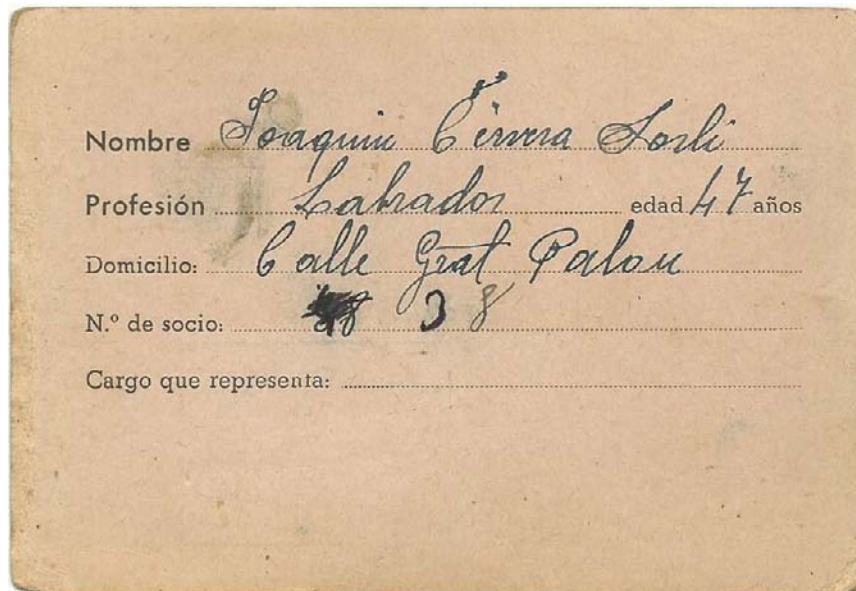 Nombre Joaquin Cervera Sorli
Profesión Labrador edad 47 años
Domicilio: Calle Gral Palou
N.º de socio: 38
Cargo que representa: